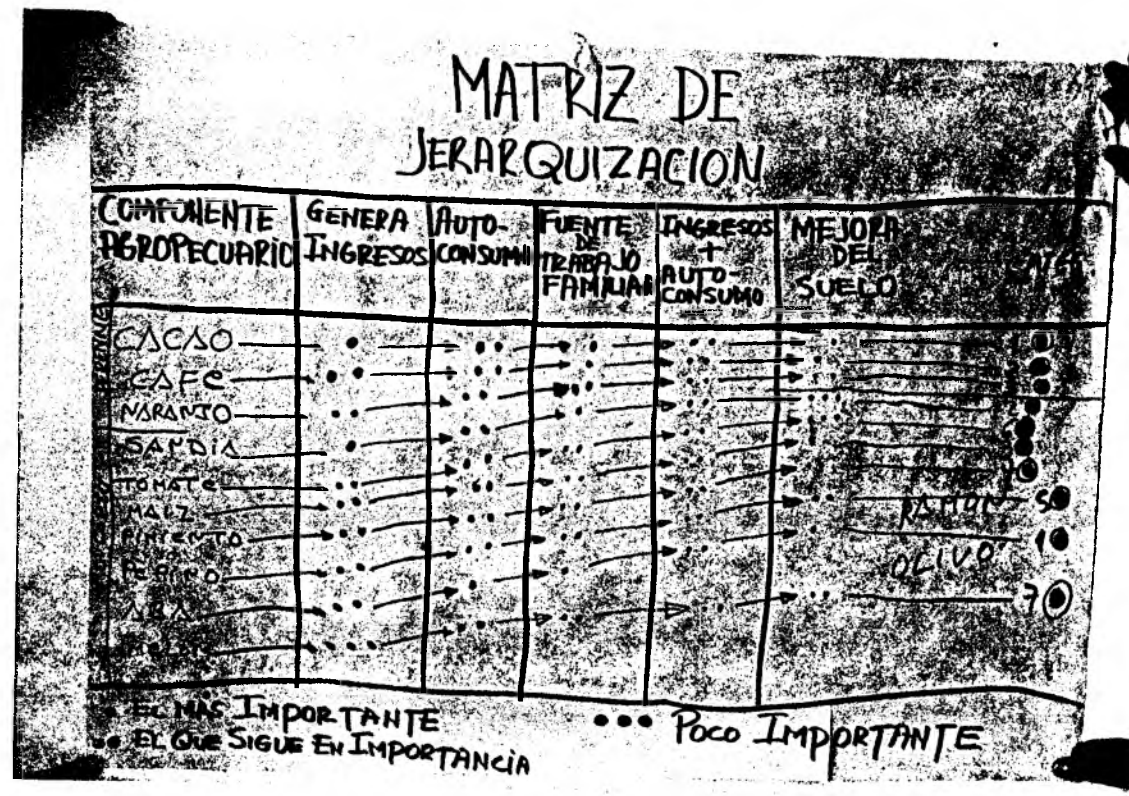 MATRIZ DE
JERARQUIZACION
COMPONENTE AGROPECUARIO
GENERA INGRESOS
AUTO-CONSUMO
FUENTE DE TRABAJO FAMILIAR
INGRESOS + AUTO-CONSUMO
MEJORA DEL SUELO
CACAO
CAFE
NARANJO
SANDIA
TOMATE
MAIZ
PIMIENTO
PEPINO
RAMON 5
OLIVO 10
7
EL MAS IMPORTANTE
EL QUE SIGUE EN IMPORTANCIA
POCO IMPORTANTE